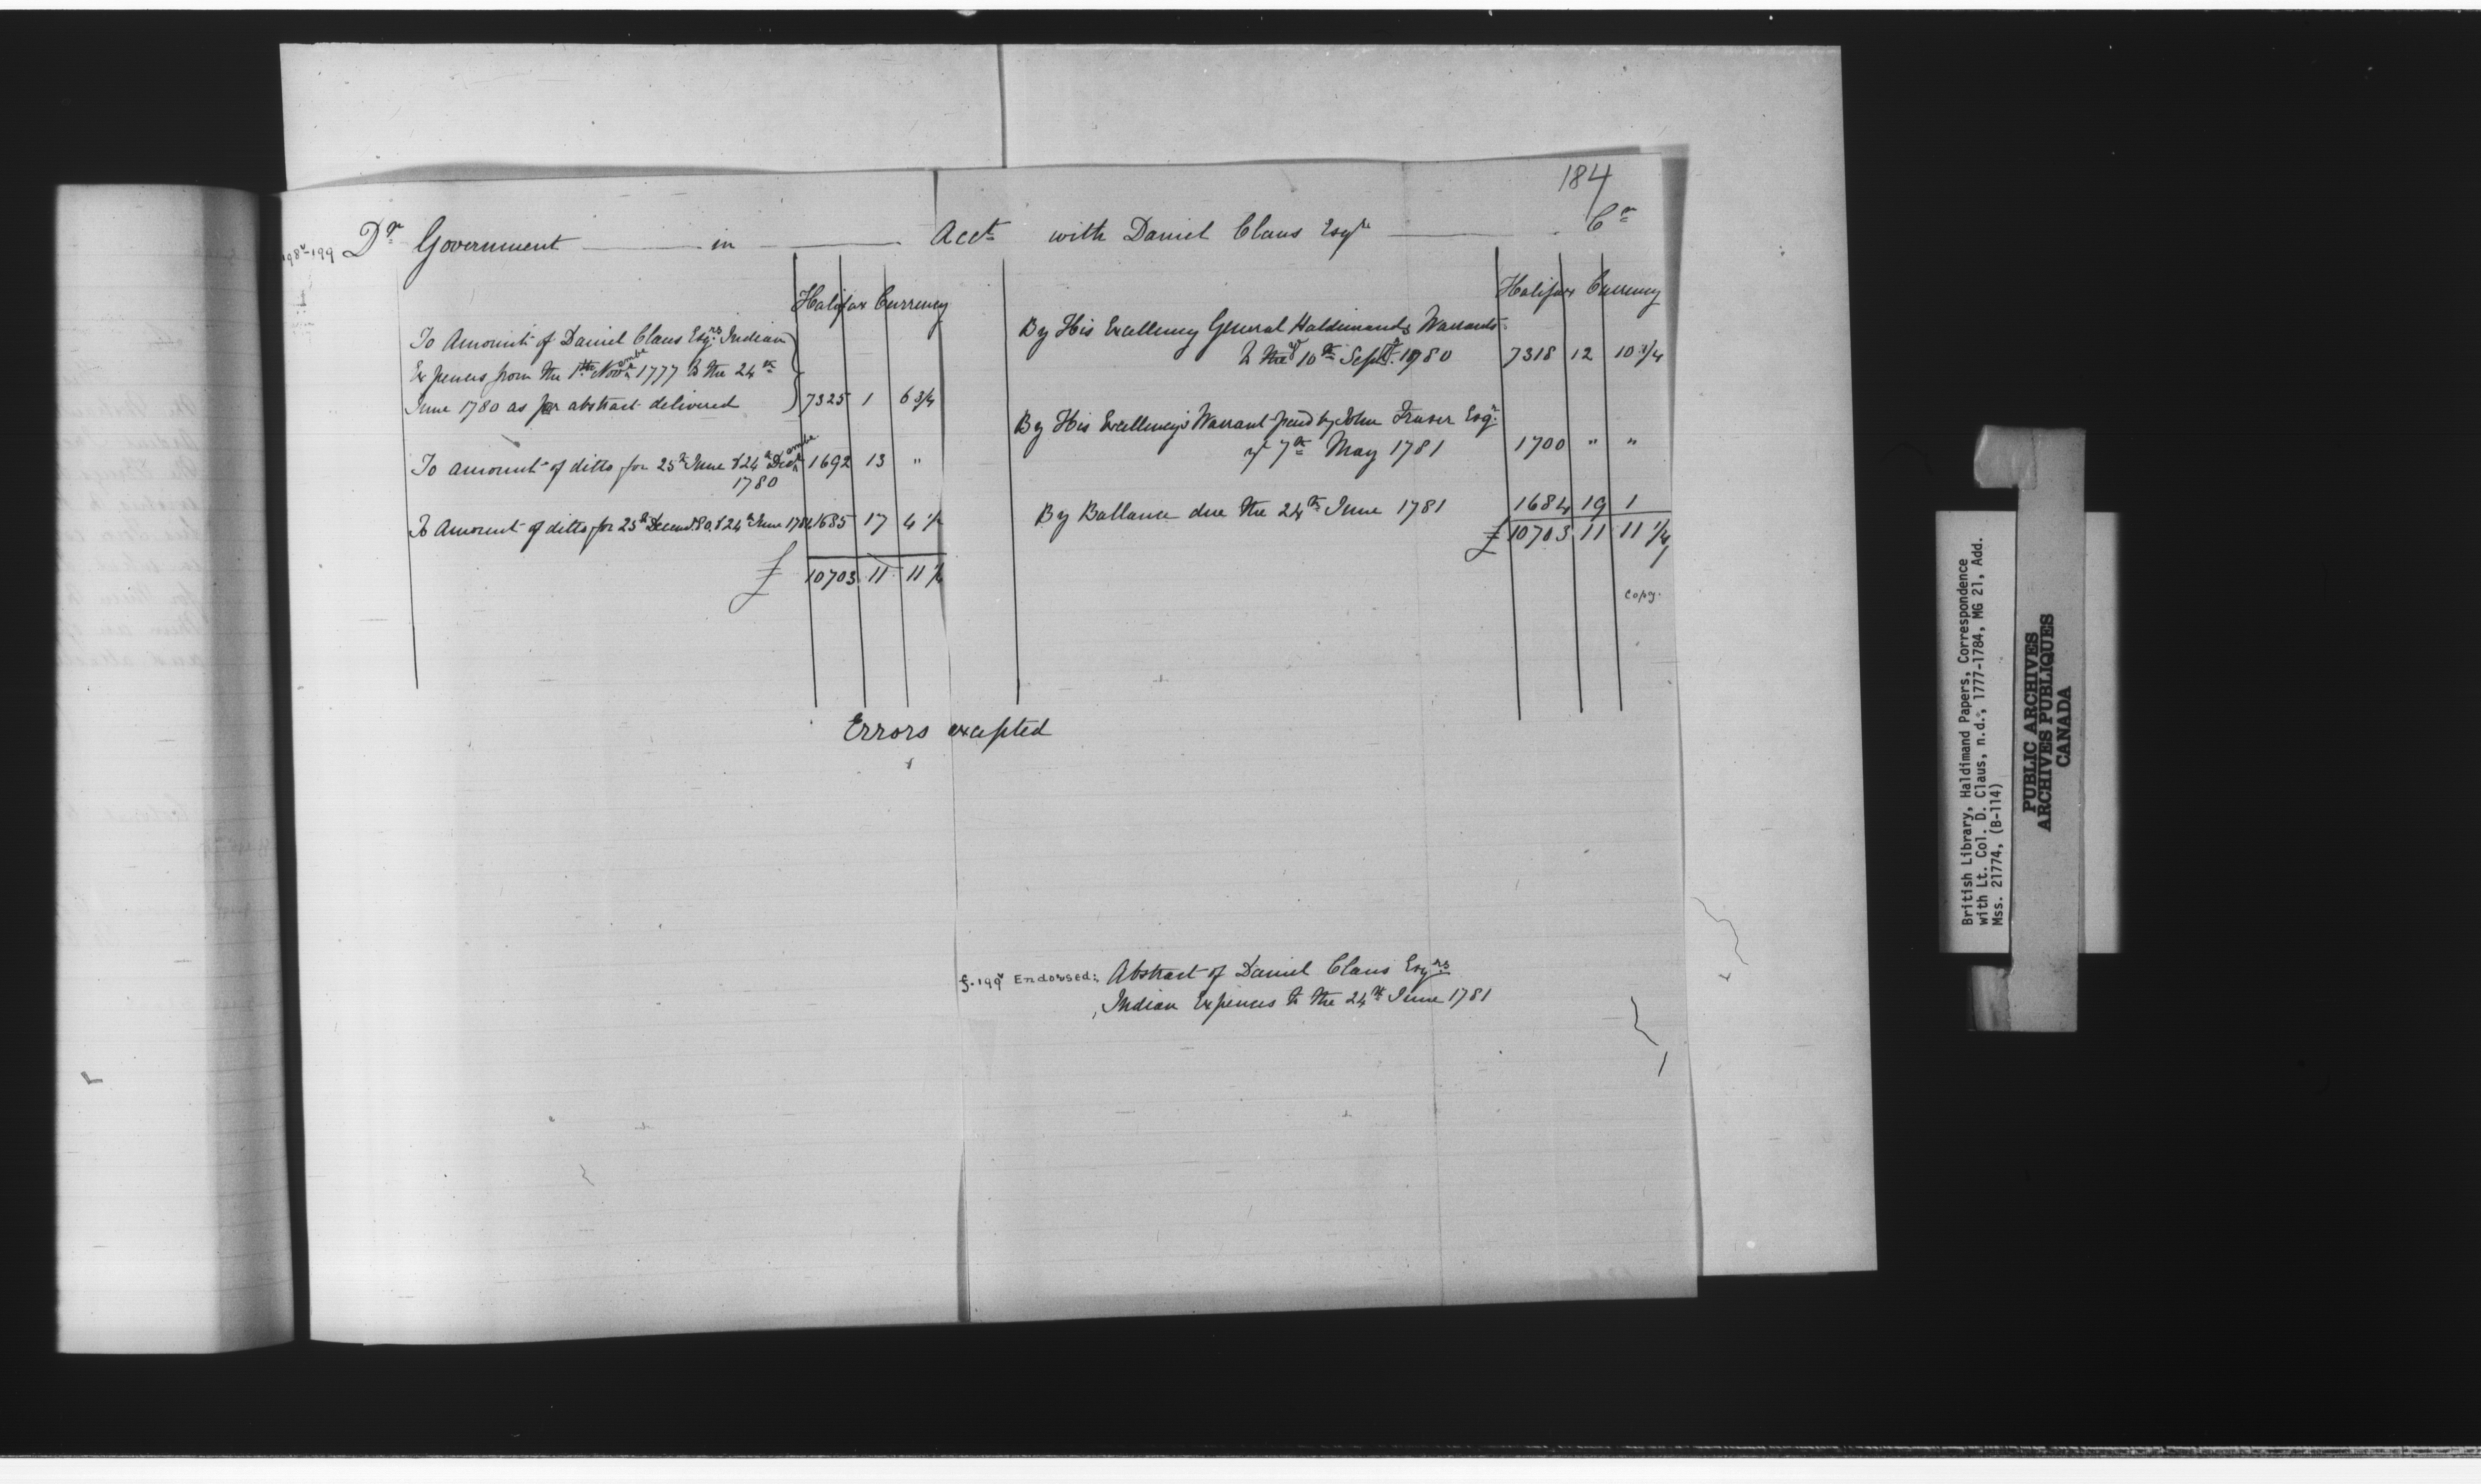 184
198v-199 Dr Government in Acct with Daniel Claus Esqre Cr
Halifax Currency
To Amount of Daniel Claus Esqrs Indian
Expences from the 1th Novembr 1777 to the 24th
June 1780 as per abstract delivered 7325 1 6 3/4
To amount of ditto for 25th June & 24th Decembr 1692 13 "
1780
To Amount of ditto for 25th Decemr 80 & 24th June 1781 1685 17 4 1/2
£ 10703 11 11 1/4
Halifax Currency
By His Excellency General Haldimands Warrants
to the 10th Septr 1780 7318 12 10 1/4
By His Excellency's Warrant paid by John Fraser Esqr
7th May 1781 1700 " "
By Ballance due the 24th June 1781 1684 19 1
£ 10703 11 11 1/4
copy.
Errors excepted
f.199v Endorsed: Abstract of Daniel Claus Esqrs
Indian Expences to the 24th June 1781
British Library, Haldimand Papers, Correspondence
with Lt. Col. D. Claus, n.d., 1777-1784, MG 21, Add.
Mss. 21774, (B-114)
PUBLIC ARCHIVES
ARCHIVES PUBLIQUES
CANADA